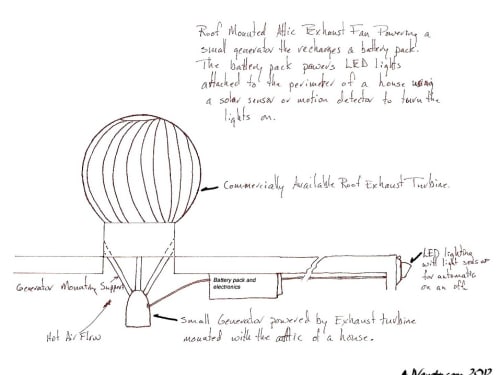 Roof Mounted Attic Exhaust Fan Powering a
small generator the recharges a battery pack.
The battery pack powers LED lights
attached to the perimeter of a house using
a solar sensor or motion detector to turn the
lights on.
Commercially Available Roof Exhaust Turbine.
LED lighting
with light sensor
for automatic
on an off
Battery pack and
electronics
Generator Mounting Support
Hot Air Flow
Small Generator powered by Exhaust turbine
mounted with the attic of a house.
2012